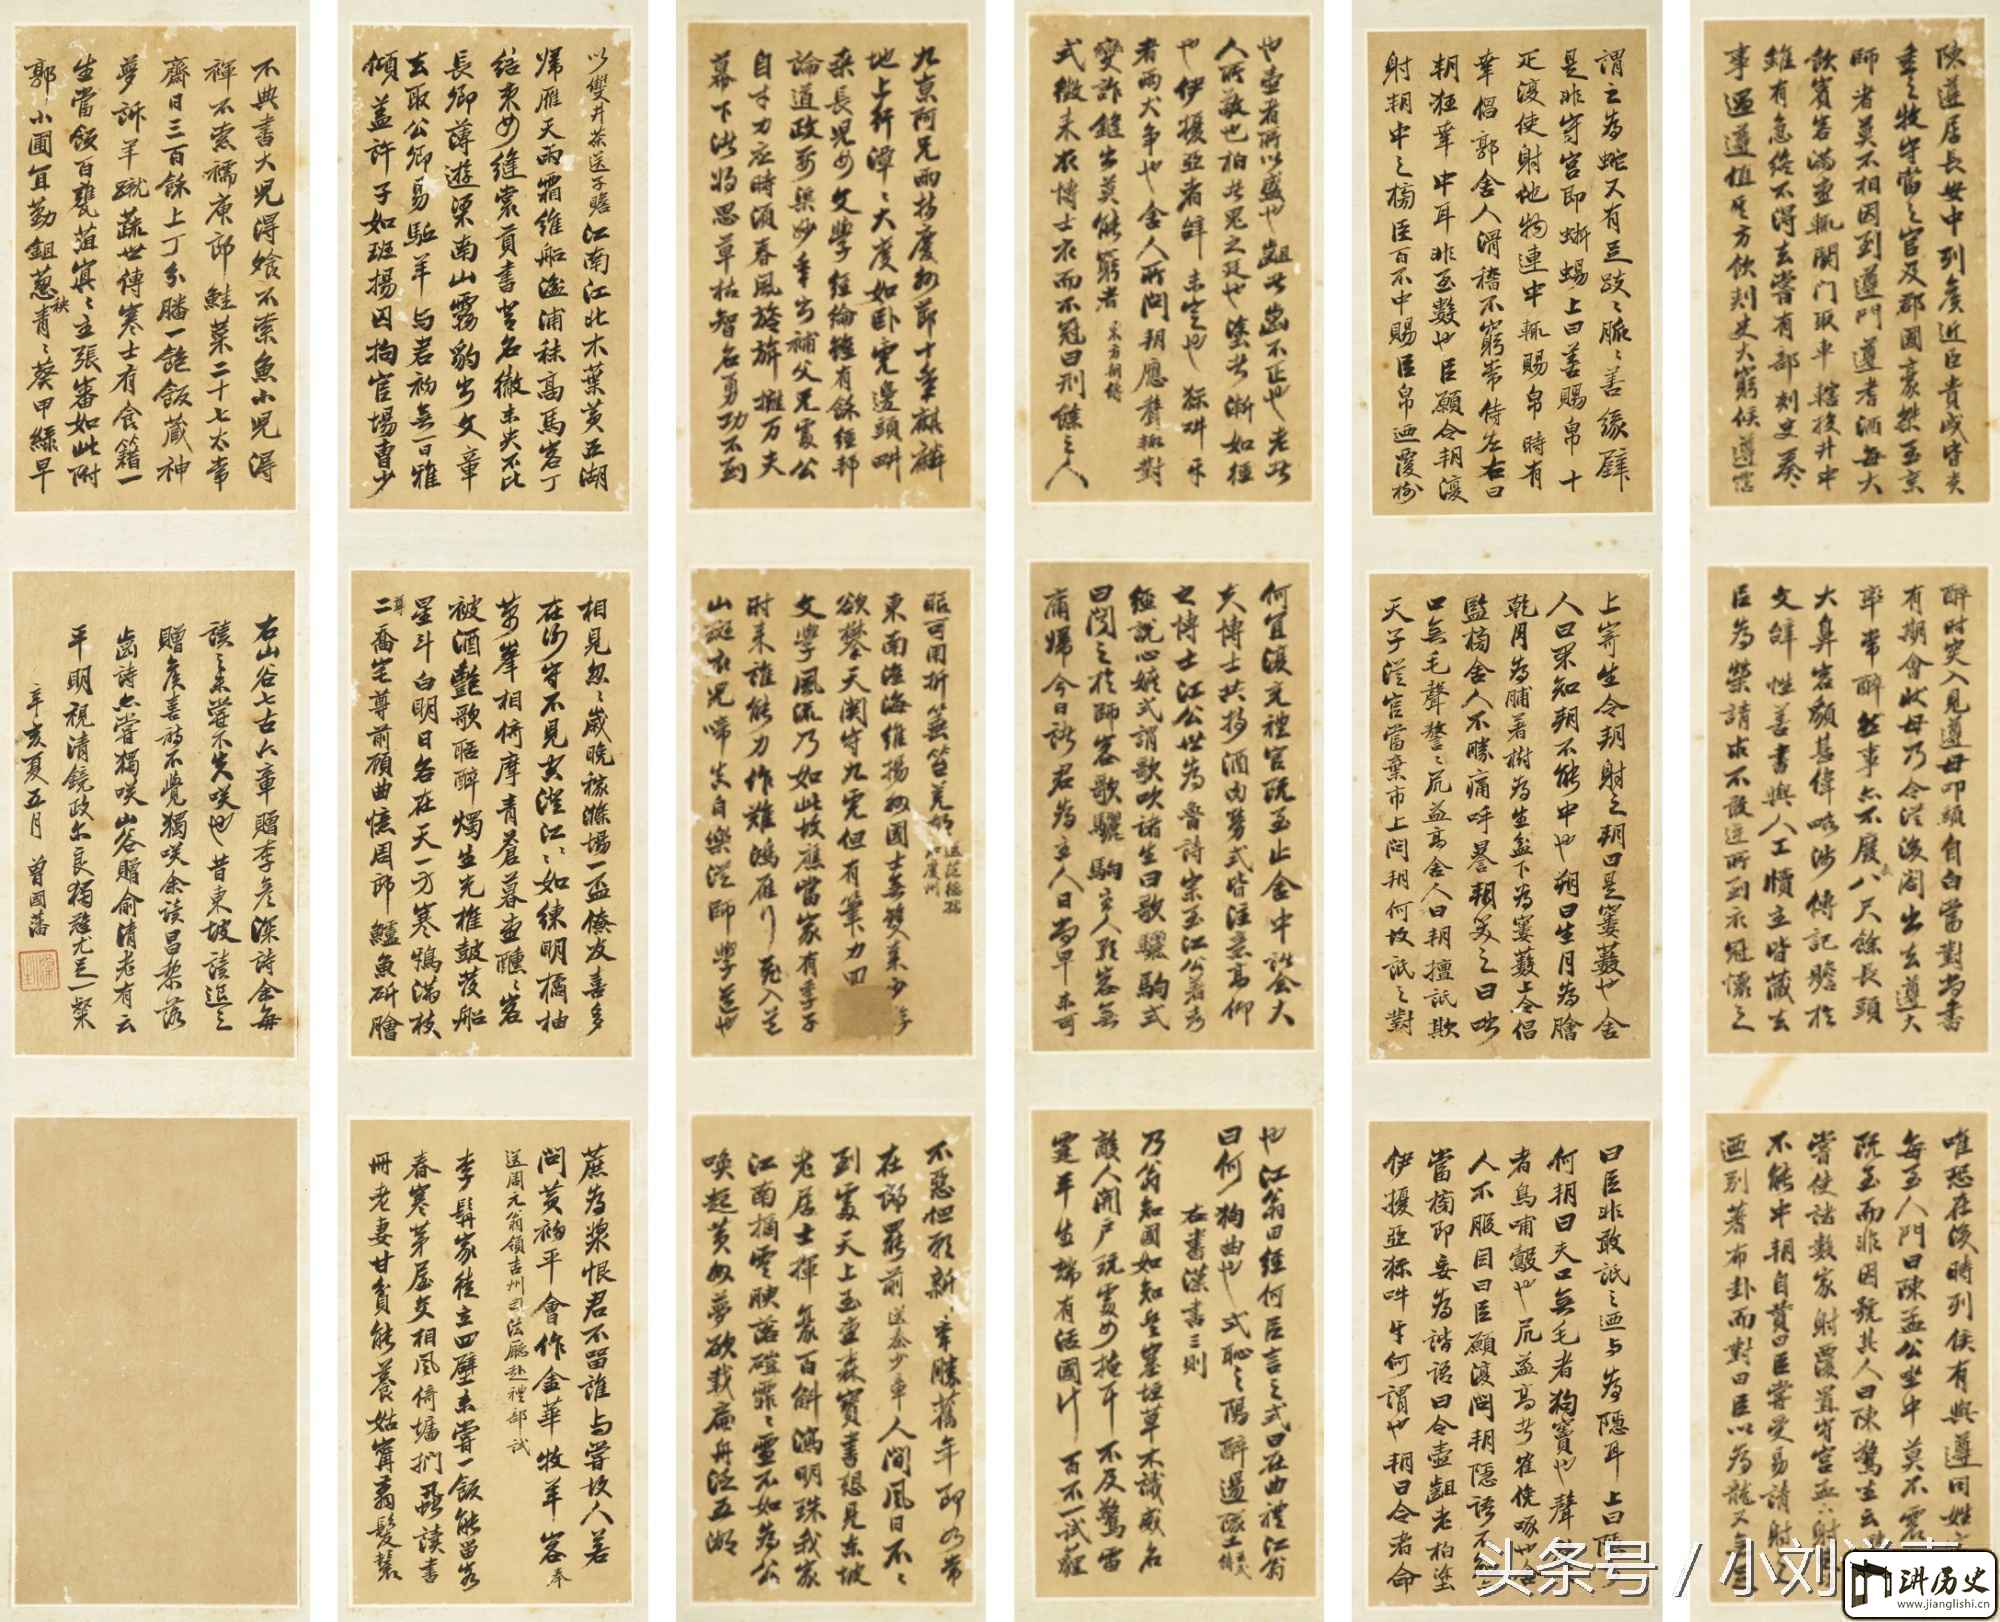 陳遵居長安中列侯近臣貴戚皆貴
重之牧守當之官及郡國豪桀至京
師者莫不相因到遵門遵耆酒每大
飲賓客滿堂輒關門取車轄投井中
雖有急終不得去嘗有部刺史奏
事過遵值其方飲刺史大窮候遵霑
醉時突入見遵母叩頭自白當對尚書
有期會狀母乃令從後閤出去遵大
率常醉然事亦不廢長八尺餘長頭
大鼻容貌甚偉略涉傳記贍於
文辭性善書與人尺牘主皆藏去
以為榮請求不敢逆所到衣冠懷之
唯恐在後時列侯有與遵同姓
每至人門曰陳孟公坐中莫不震
既至而非因號其人曰陳驚坐云
嘗使諸數家射覆置守宮盂下射
不能中朔自贊曰臣嘗受易請射
迺別蓍布卦而對曰臣以為龍又無
謂之為蛇又有足跂〻脈〻善緣壁
是非守宮即蜥蜴上曰善賜帛十
疋復使射他物連中輒賜帛時有
幸倡郭舍人滑稽不窮常侍左右曰
朔狂幸中耳非至數也臣願令朔復
射朔中之榜臣百不中賜臣帛迺覆樹
上寄生令朔射之朔曰是窶藪也舍
人曰果知朔不能中也朔曰生肉為膾
乾肉為脯著樹為生盆下為窶藪上令倡
監榜舍人不勝痛呼謈朔笑之曰咄
口無毛聲謷〻尻益高舍人曰朔擅詆欺
天子從官當棄市上問朔何故詆之對
曰臣非敢詆之迺與為隱耳上曰隱
何朔曰夫口無毛者狗竇也聲
者鳥哺鷇也尻益高者隺俛啄也
人不服因曰臣願復問朔隱語不
當榜即妄為諧語曰令壺齟老柏塗
伊優亞狋吽牙何謂也朔曰令者命
也壺者所以盛也齟者齒不正也老者
人所敬也柏者鬼之廷也塗者漸如徑
也伊優亞者辭未定也狋吽牙
者兩犬爭也舍人所問朔應聲輒對
變詐鋒出莫能窮者 東方朔傳
式徵來衣博士衣而不冠曰刑餘之人
何宜復充禮官既至止舍中會諸大
夫博士共持酒肉勞式皆注意高仰
之博士江公世為魯詩宗至江公著孝
經說心嫉式謂歌吹諸生曰歌驪駒式
曰聞之於師客歌驪駒主人歌客無
庸歸今日諸君為主人日尚早未可
也江翁曰經何以言之式曰在曲禮江翁
曰何狗曲也式恥之陽醉逿墜
右書漢書三則
乃翁知國如知兵塞垣草木識威名
敵人開戶玩處女掩耳不及驚雷
霆平生端有活國計百不一試薶
九京阿兄兩持慶州節十年麒麟
地上行潭〻大度如臥虎邊頭耕
桑長兒女文學經綸雖有餘經邦
論道政要渠妙年出補父兄處公
自才力應時須春風旍旂擁萬夫
幕下諸將思草枯智名勇功不到
眼可用折箠笞羌胡 送范德孺知慶州
東南淮海維揚州國士無雙秦少游
欲攀天關守九虎但有筆力回
文學風流乃如此故應當家有季子
時來誰能力作難鴻雁行飛入道
山斑衣兒啼真自樂從師學道也
不惡但願新年勝舊年即如常
在郎罷前 送秦少章 人間風日不
到處天上玉堂森寶書想見東坡
舊居士揮毫百斛瀉明珠我家
江南摘雲腴落磑霏〻雪不如為公
喚起黃州夢載扁舟泛五湖
以雙井茶送子瞻 江南江北木葉黃五湖
歸雁天雨霜維船湓浦秣高馬客丁
結束女縫裳貢書登名徹未央不比
長卿薄遊梁南山霧豹出文章
去取公卿易驅羊與君初無一日雅
傾蓋許子如班揚囚拘官場曹少
相見忽〻歲晚稼滌場一盃僚友喜多
在行守不見從江〻如練明橘柚
萬峯相倚摩青蒼暮壺醺〻客
被酒艷歌聒醉燭生光椎鼓發船
星斗白明日各在天一方寒鴉滿枝
二喬宅尊前顧曲憶周郎鱸魚斫膾
蔗為漿恨君不留誰與嘗故人若
問黃初平會作金華牧羊客 奉
送周元翁鎖吉州司法廳赴禮部試
李髯家徒立四壁未嘗一飯能留客
春寒茅屋交相風倚墻捫蝨讀書
冊老妻甘貧能養姑寧剪髮鬟
不典書大兒得飧不索魚小兒得
褌不索襦庾郎鮭菜二十七太常
齋日三百餘上丁分膰一飽飯藏神
夢訴羊蹴蔬世傳寒士有食籍一
生當飯百甕葅冥〻主張審如此附
郭小圃宜勤鉏葱秧青〻葵甲綠早
右山谷七古六章贈李彥深詩余每
讀之未嘗不失咲也昔東坡讀退之
贈侯喜詩不覺獨咲余讀昌黎落
齒詩亦嘗獨咲山谷贈俞清老有云
平明視清鏡政尔良獨難尤足一粲
辛亥夏五月 曾國藩
头条号 / 小刘说
讲历史
www.jianglishi.cn